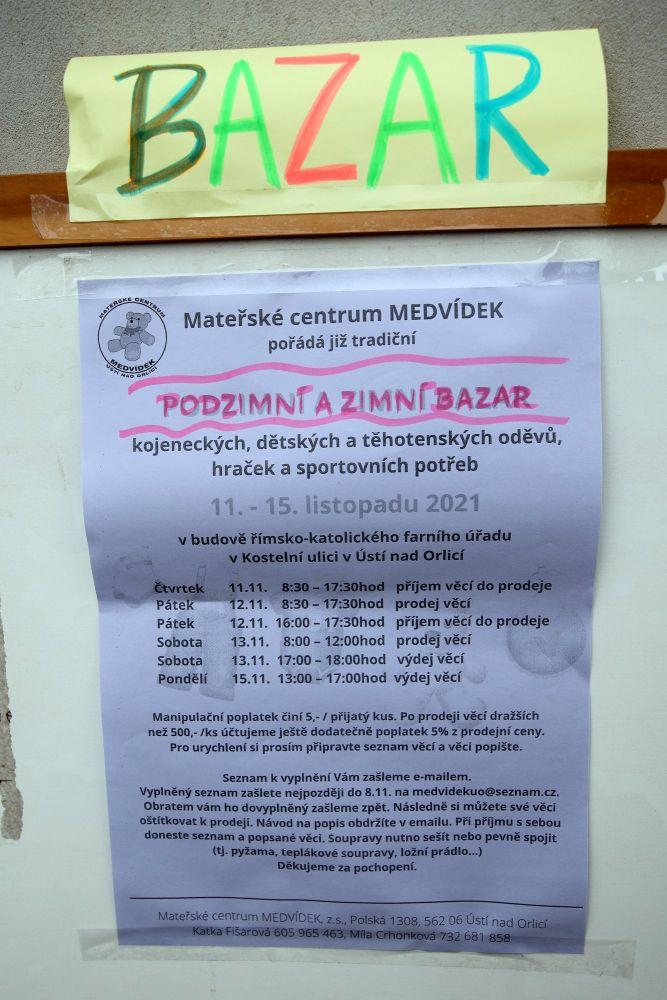 BAZAR
MATEŘSKÉ CENTRUM
MEDVÍDEK
ÚSTÍ NAD ORLICÍ
Mateřské centrum MEDVÍDEK
pořádá již tradiční
PODZIMNÍ A ZIMNÍ BAZAR
kojeneckých, dětských a těhotenských oděvů,
hraček a sportovních potřeb
11. - 15. listopadu 2021
v budově římsko-katolického farního úřadu
v Kostelní ulici v Ústí nad Orlicí
Čtvrtek 11.11. 8:30 – 17:30hod příjem věcí do prodeje
Pátek 12.11. 8:30 – 17:30hod prodej věcí
Pátek 12.11. 16:00 – 17:30hod příjem věcí do prodeje
Sobota 13.11. 8:00 – 12:00hod prodej věcí
Sobota 13.11. 17:00 – 18:00hod výdej věcí
Pondělí 15.11. 13:00 – 17:00hod výdej věcí
Manipulační poplatek činí 5,- / přijatý kus. Po prodeji věcí dražších
než 500,- /ks účtujeme ještě dodatečně poplatek 5% z prodejní ceny.
Pro urychlení si prosím připravte seznam věcí a věci popište.
Seznam k vyplnění Vám zašleme e-mailem.
Vyplněný seznam zašlete nejpozději do 8.11. na medvidekuo@seznam.cz.
Obratem vám ho dovyplněný zašleme zpět. Následně si můžete své věci
oštítkovat k prodeji. Návod na popis obdržíte v emailu. Při příjmu s sebou
doneste seznam a popsané věci. Soupravy nutno sešít nebo pevně spojit
(tj. pyžama, teplákové soupravy, ložní prádlo...)
Děkujeme za pochopení.
Mateřské centrum MEDVÍDEK, z.s., Polská 1308, 562 06 Ústí nad Orlicí
Katka Fišarová 605 965 463, Míla Crhonková 732 681 858